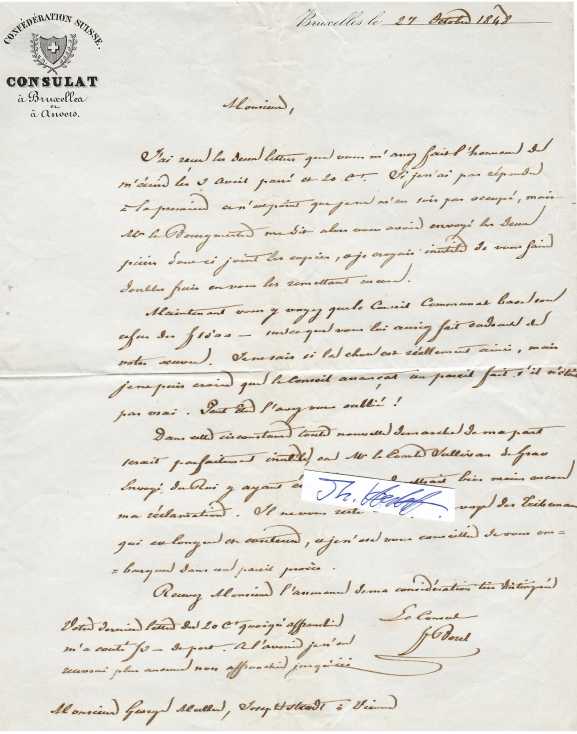 CONFÉDÉRATION SUISSE.
CONSULAT
à Bruxelles
et
à Anvers.
Bruxelles le 27 Octobre 1848
Monsieur,
J'ai reçu les deux lettres que vous m'avez fait l'honneur de
m'écrire les 2 avril passé et 20 Ct. Si je n'ai pas répondu
à la première ce n'est point que je ne m'en sois pas occupé, mais
Mr le Bourgmestre me dit alors vous avoir envoyé les deux
pièces dont ci joint les copies, et je croyais inutile de vous faire
doubles frais en vous les remettant
Maintenant vous y voyez que le Conseil Communal base son
refus des f 1500 — sur ce que vous lui auriez fait cadeau de
votre oeuvre. Je ne sais si la chose est réellement ainsi, mais
je ne puis croire que le Conseil avançat un pareil fait s'il n'était
pas vrai. Peut être l'avez vous oublié!
Dans cette circonstance toute nouvelle démarche de ma part
serait parfaitement inutile, et Mr le Comte Sullivan de Grass
Envoyé du Roi y ayant bien moins encore
ma réclamation. Il ne vous reste des Tribunaux
qui est longue et couteuse, et je n'ose vous conseiller de vous em-
=barquer dans un pareil procès.
Recevez Monsieur l'assurance de ma considération très distinguée
Le Consul
Votre dernière lettre du 20 Ct quoiqu'affranchie
m'a couté f2 — de port. A l'avenir je n'en
recevrai plus aucune non affranchie jusqu'ici
Monsieur George Muller, Josephstadt à Vienne